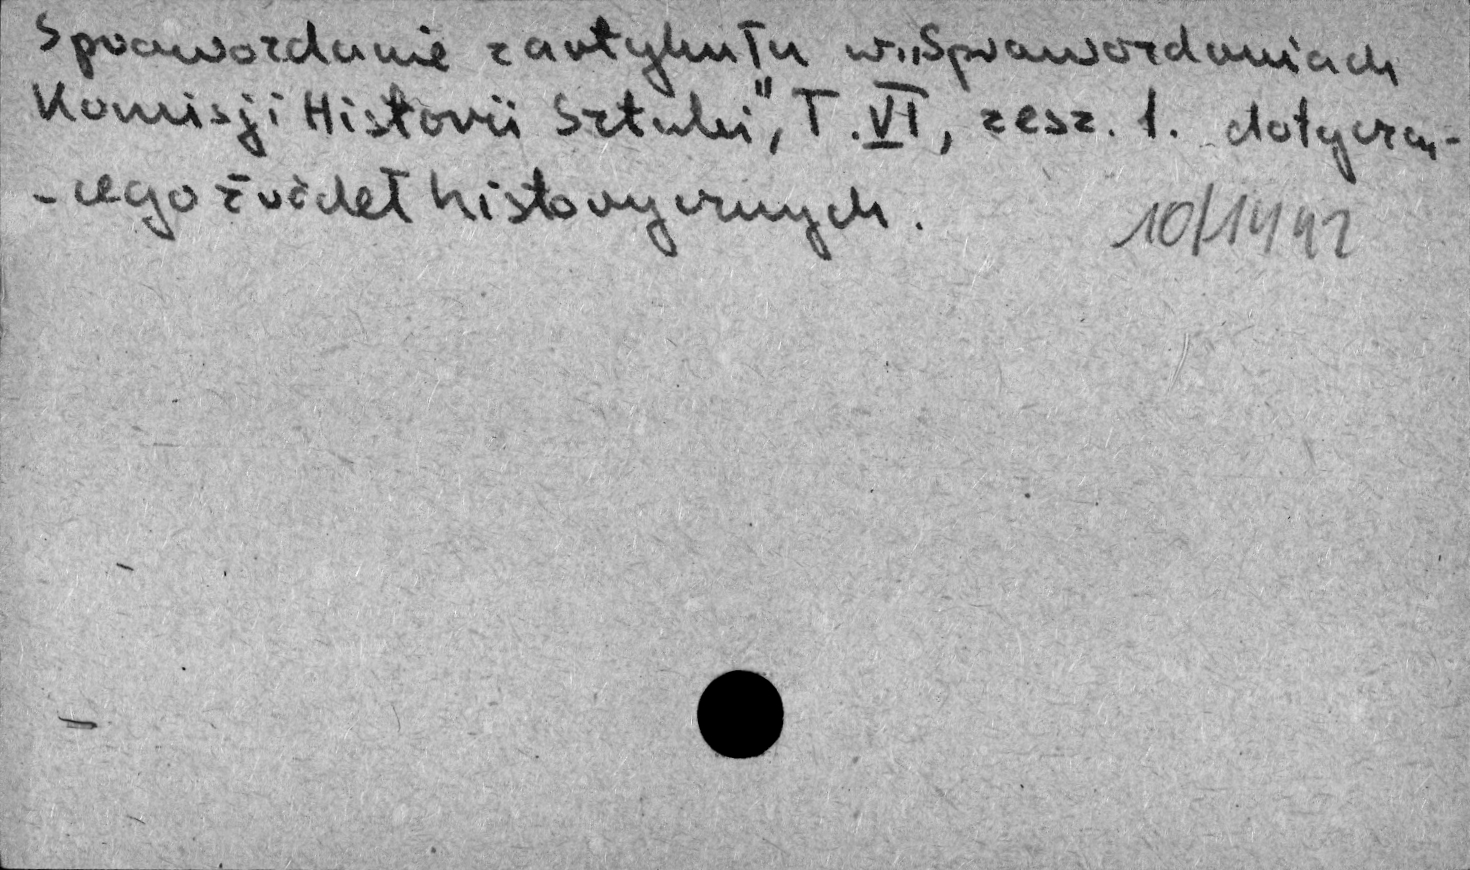 Sprawozdanie z artykułu w „Sprawozdaniach
Komisji Historii Sztuki", T. VI, zesz. 1. dotyczą-
- cego źródeł historycznych.
10/1442